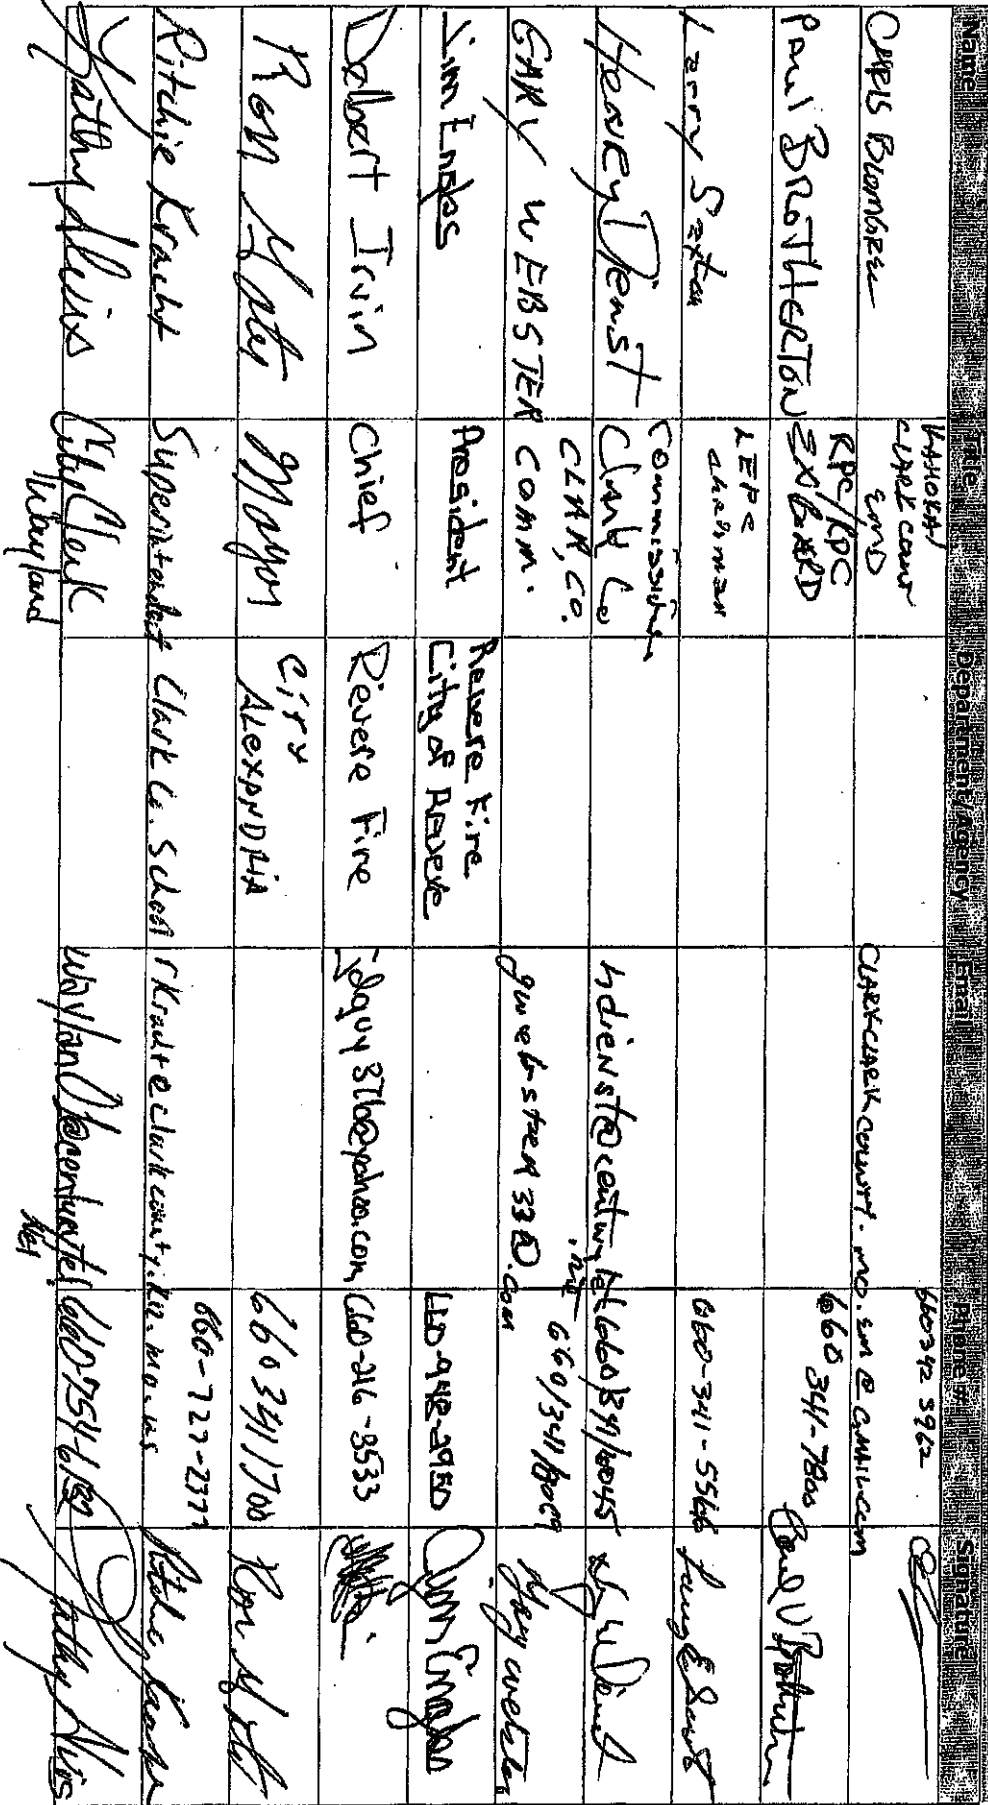 Name Title Department/Agency Email Phone # Signature
CHRIS BLOMGREN KAHOKA/ CLARK COUNT EMD CLARKCLARKCOUNTY.MO.EM@GMAIL.COM 660342 3962
Paul BROTHERTON RPC/RPC EX BOARD 660 341-7800
Larry Sexton LEPC chairman 660-341-5546
Henry Dienst Commissioner Clark Co hdienst@centurytel.net 660/341/6045
GARY WEBSTER CLARK, CO. COMM. 660/341/8069 Gary Webster
Jim Engles President Revere Fire City of Revere 660-948-2950 Jim Engles
Delbert Irvin Chief Revere Fire 660-216-3533
Ron Mayor City ALEXANDRIA 660 341 1700 Ron
Ritchie Kracht Superintendent Clark Co. School rkracht@clarkcounty.k12.mo.us 660-727-2377 Ritchie Kracht
Kathy City Clerk Wayland 660-754- Kathy